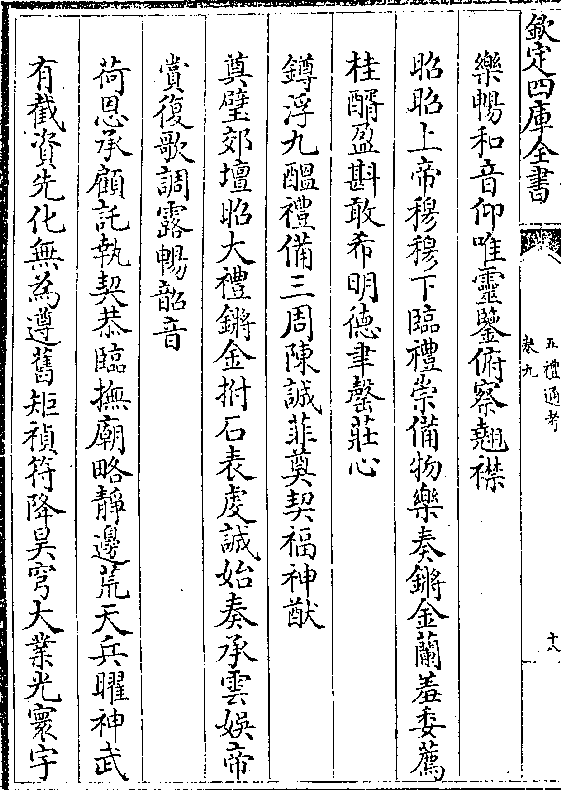 欽定四庫全書
五禮通考
卷九
十八
樂暢和音仰唯靈鑒俯察翹襟
昭昭上帝穆穆下臨禮崇備物樂奏鏘金蘭羞委薦
桂醑盈斟敢希明德聿罄莊心
鐏浮九醖禮備三周陳誠菲奠契福神猷
奠璧郊壇昭大禮鏘金拊石表虔誠始奏承雲娛帝
賞復歌調露暢韶音
荷恩承顧託執契恭臨撫廟略靜邊荒天兵曜神武
有截資先化無為遵舊矩禎符降昊穹大業光寰宇